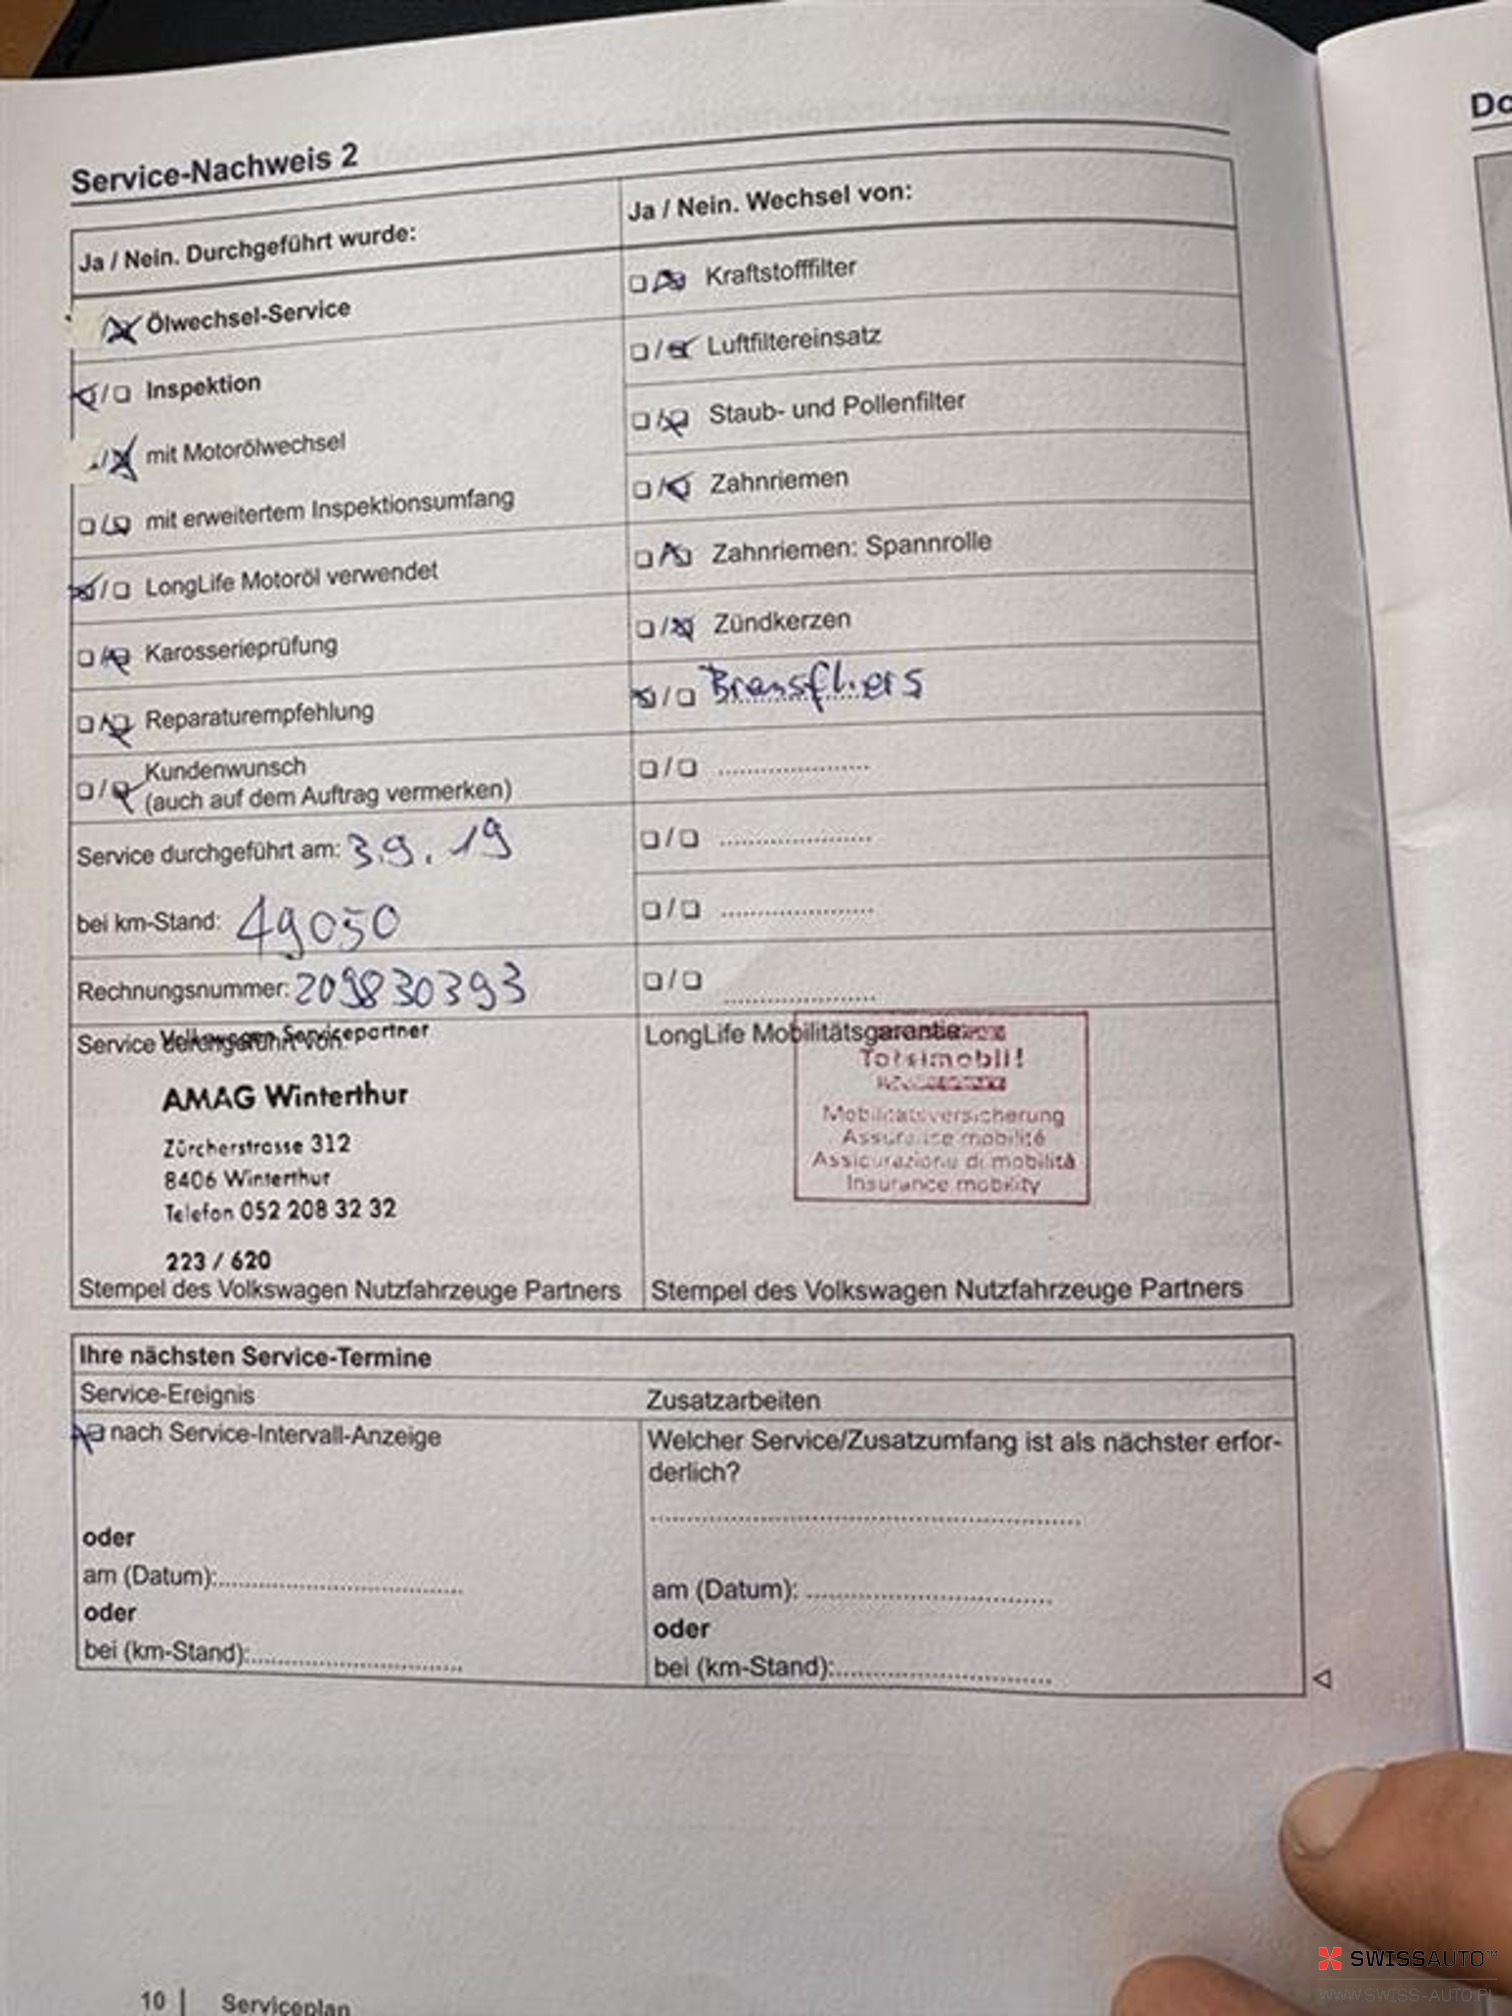 Do
Service-Nachweis 2
Ja / Nein. Durchgeführt wurde:
Ja / Nein. Wechsel von:
Ölwechsel-Service
Kraftstofffilter
Inspektion
Luftfiltereinsatz
mit Motorölwechsel
Staub- und Pollenfilter
mit erweitertem Inspektionsumfang
Zahnriemen
LongLife Motoröl verwendet
Zahnriemen: Spannrolle
Karosserieprüfung
Zündkerzen
Reparaturempfehlung
Kundenwunsch
(auch auf dem Auftrag vermerken)
Service durchgeführt am: 3.9.19
bei km-Stand: 49050
Rechnungsnummer: 209830393
Volkswagen Servicepartner
Service durchgeführt von:
LongLife Mobilitätsgarantie
AMAG Winterthur
Zürcherstrasse 312
8406 Winterthur
Telefon 052 208 32 32
223 / 620
Totalmobil!
Mobilitätsversicherung
Assurance mobilité
Assicurazione di mobilità
Insurance mobility
Stempel des Volkswagen Nutzfahrzeuge Partners
Stempel des Volkswagen Nutzfahrzeuge Partners
Ihre nächsten Service-Termine
Service-Ereignis
Zusatzarbeiten
nach Service-Intervall-Anzeige
Welcher Service/Zusatzumfang ist als nächster erfor-
derlich?
oder
am (Datum):
oder
bei (km-Stand):
am (Datum):
oder
bei (km-Stand):
10 | Serviceplan
SWISSAUTO
WWW.SWISS-AUTO.PL